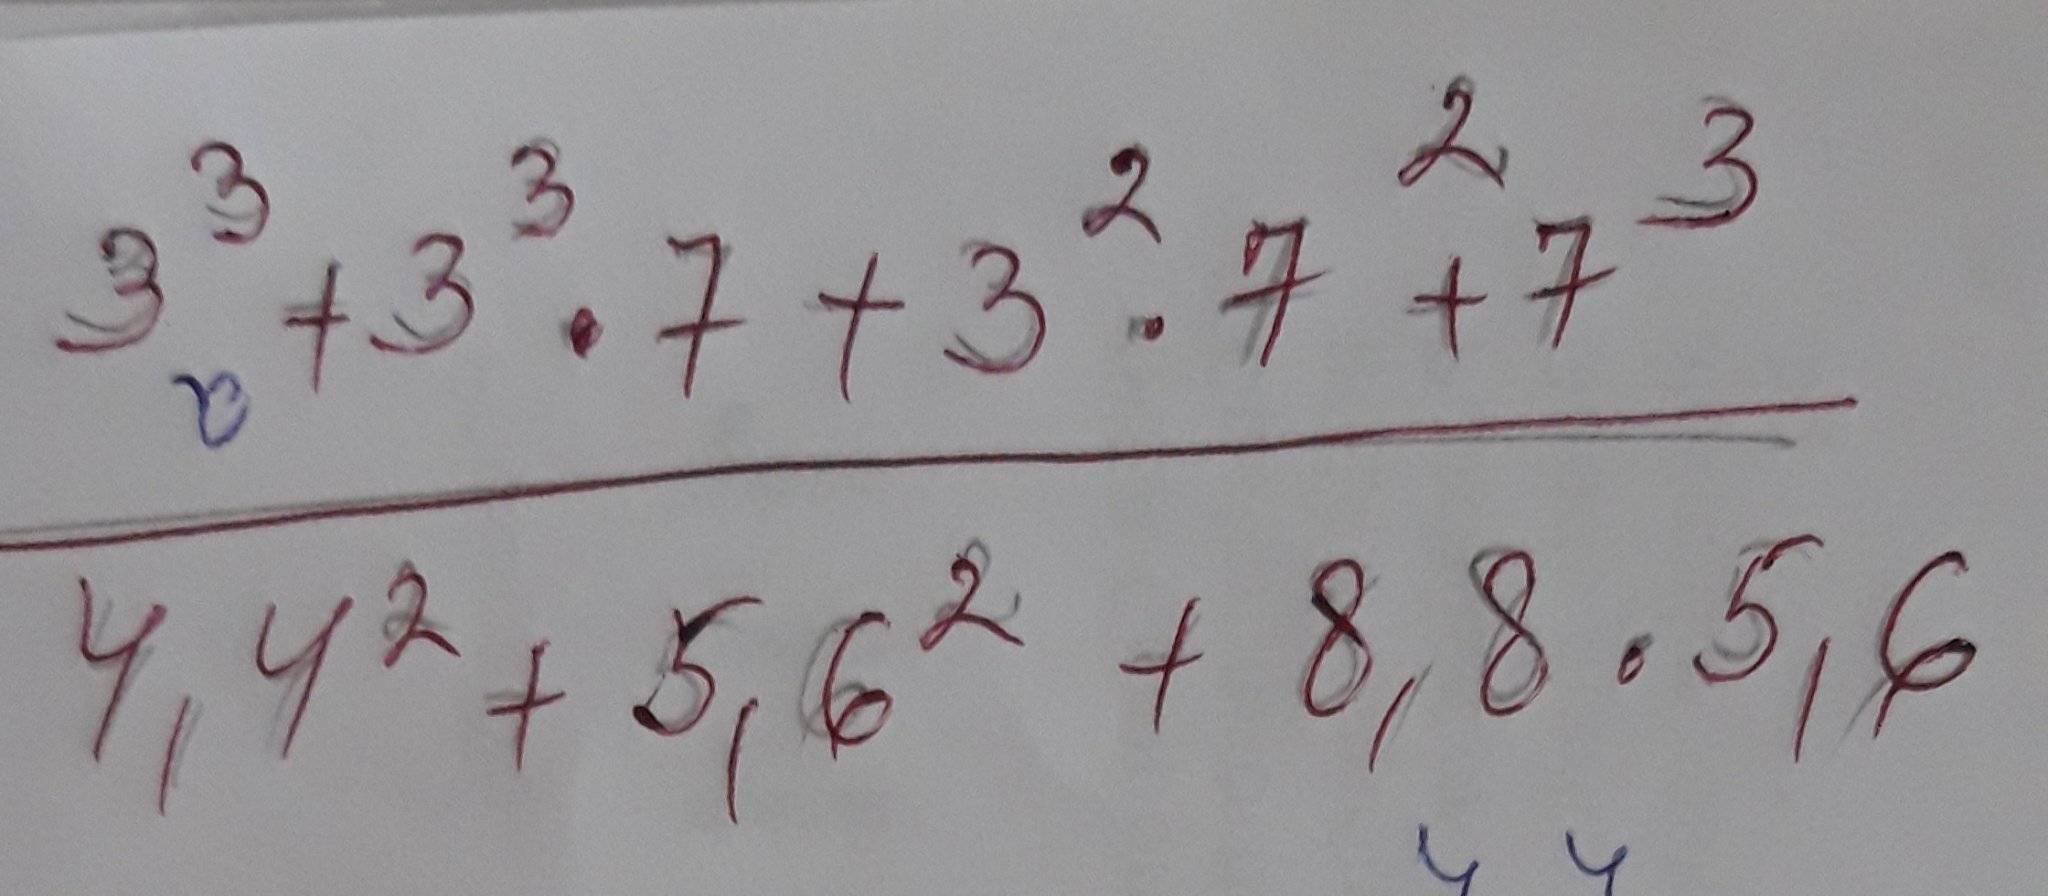 3³ + 3³ · 7 + 3² · 7² + 7³
4,4² + 5,6² + 8,8 · 5,6